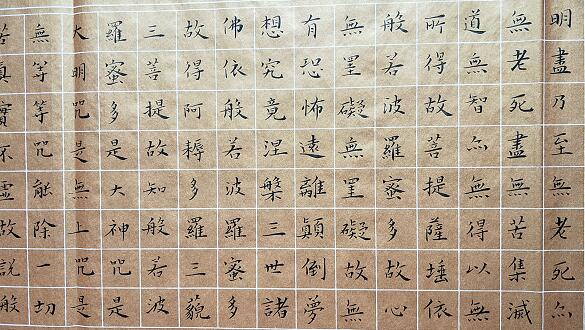 明盡乃至無老死亦
無老死盡無苦集滅
道無智亦無得以無
所得故菩提薩埵依
般若波羅蜜多故心
無罣礙無罣礙故無
有恐怖遠離顛倒夢
想究竟涅槃三世諸
佛依般若波羅蜜多
故得阿耨多羅三藐
三菩提故知般若波
羅蜜多是大神咒是
大明咒是無上咒是
無等等咒能除一切
苦真實不虛故說般